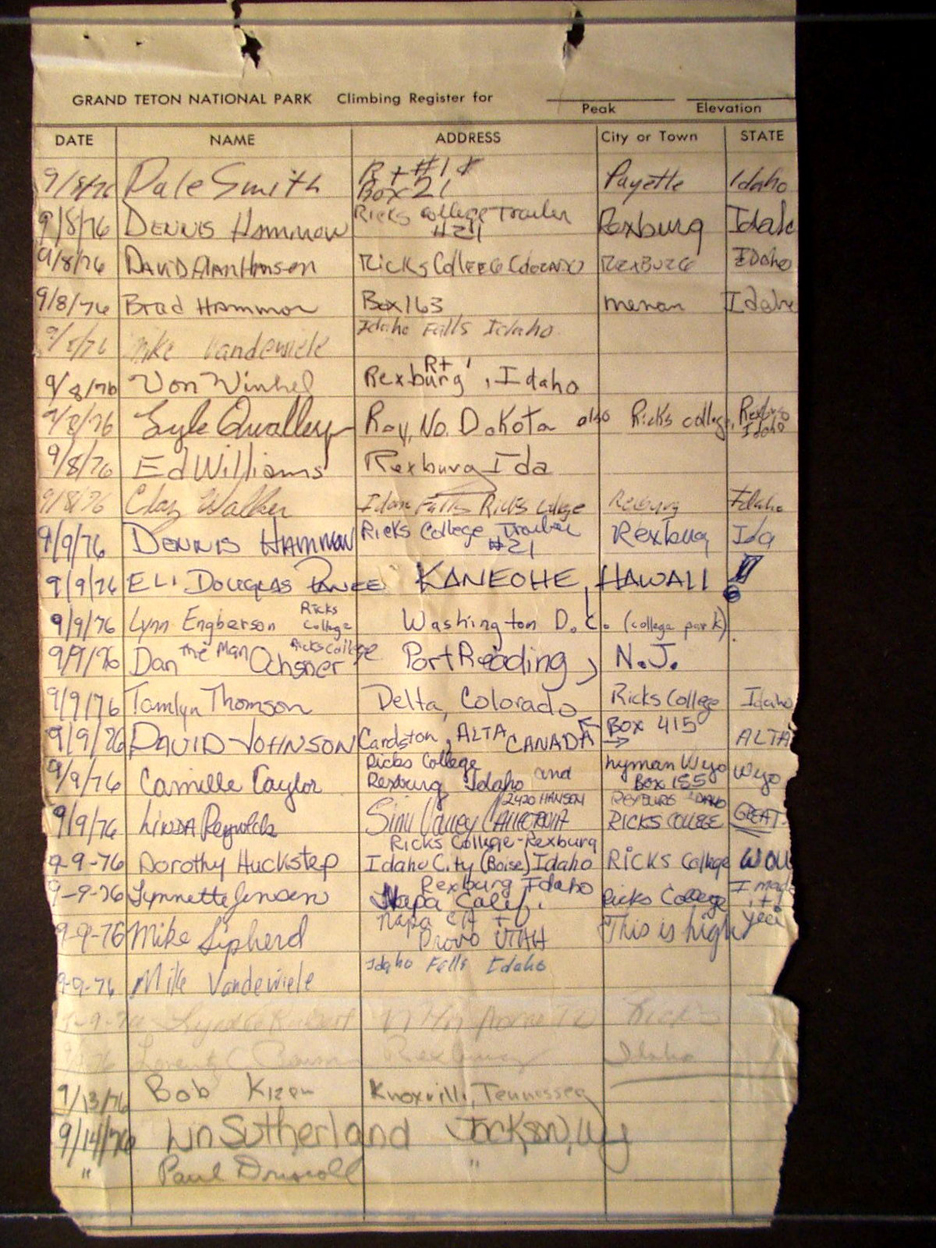 GRAND TETON NATIONAL PARK Climbing Register for
Peak Elevation
DATE NAME ADDRESS City or Town STATE
9/8/76 Dale Smith Rt #1 Box 21 Payette Idaho
9/8/76 DENNIS HAMMON Ricks College Trailer #21 Rexburg Idaho
9/8/76 DAVID Alan Hansen RICKS COLLEGE REXBURG IDaho
9/8/76 Brad Hammon Box 163 menan Idaho
9/8/76 Mike Vandewiele Idaho Falls Idaho
9/8/76 Von Winkel Rexburg Rt 1, Idaho
9/8/76 Lyle Qualley Ray, No. DaKota also Ricks college, Rexburg Idaho
9/8/76 Ed Williams Rexburg Ida
9/8/76 Clay Walker Idaho Falls Ricks College Rexburg Idaho
9/9/76 DENNIS HAMMON Ricks College Trailer #21 Rexburg Ida
9/9/76 ELI DOUGLAS KANEOHE, HAWAII !
9/9/76 Lynn Engberson Ricks College Washington D.C. (college park)
9/9/76 Dan the Man Ochsner Ricks College Port Reading, N.J.
9/9/76 Tamlyn Thomson Delta, Colorado Ricks College Idaho
9/9/76 DAVID JOHNSON Cardston, ALTA CANADA Box 415 ALTA
9/9/76 Camille Taylor Ricks College Rexburg Idaho and Lyman Wyo Box 155 Wyo
9/9/76 LINDA Reynolds 2420 HANSEN Simi Valley CALIFORNIA REXBURG IDAHO RICKS COLLEGE GREAT
9-9-76 Dorothy Huckstep Ricks College-Rexburg Idaho City (Boise) Idaho Ricks College WOW
9-9-76 Lynnette Jensen Rexburg Idaho Napa Calif. Ricks College I made it
9-9-76 Mike Sipherd Napa CA Provo UTAH This is high yea
9-9-76 Mike Vandewiele Idaho Falls Idaho
Rexburg Idaho
9/13/76 Bob Knoxville, Tennessee
9/14/76 Lin Sutherland Jackson, Wy
" Paul Driscoll "